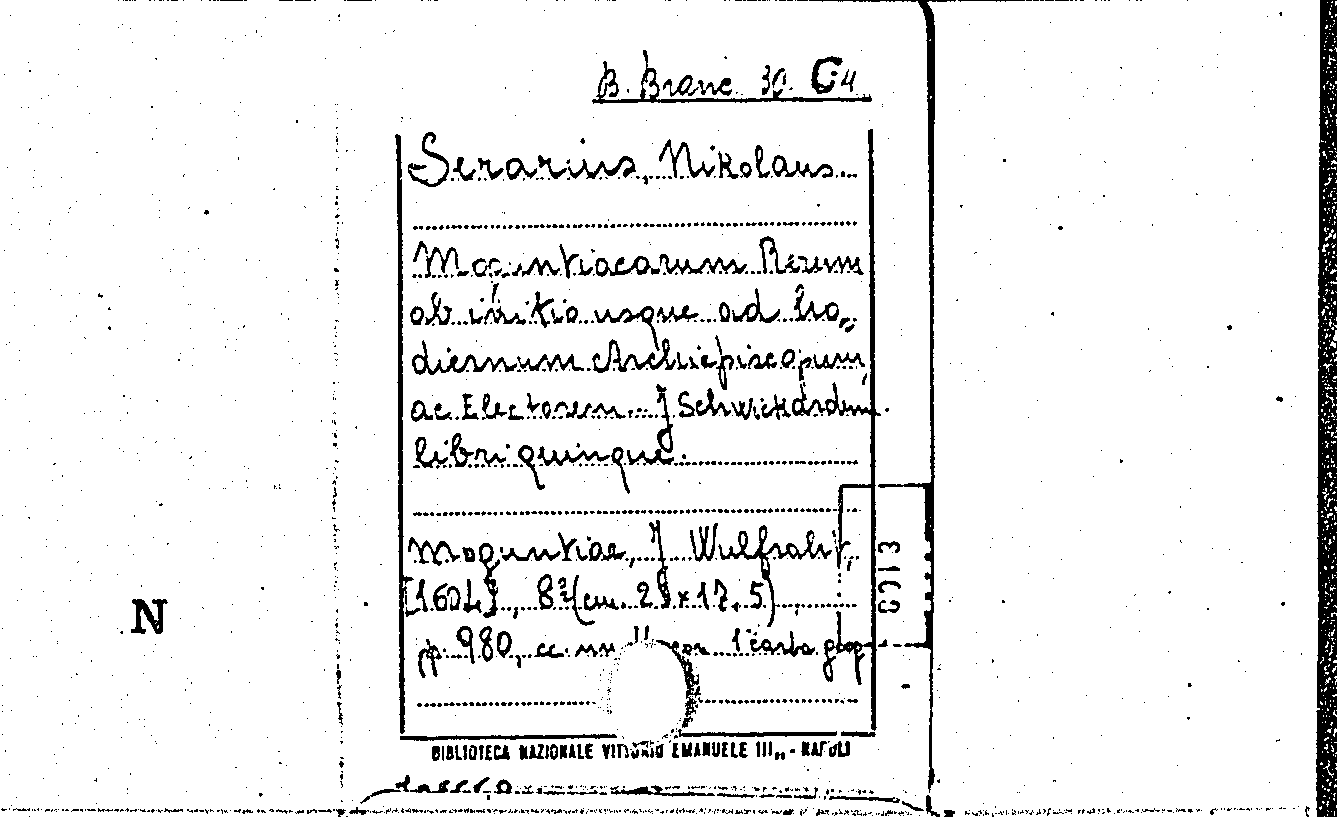 B. Branc. 30. G 4
Serarius, Nikolaus.
Moguntiacarum Rerum
ab initio usque ad ho„
diernum Archiepiscopum
ac Electorem... J Schwickardum.
libri quinque.
Moguntiae, J Wulfraht,
[1604], 8° (cm. 23 x 17,5)
pp. 980, cc. nn con 1 carta geog
N
BIBLIOTECA NAZIONALE VITTORIO EMANUELE III„ - NAPOLI